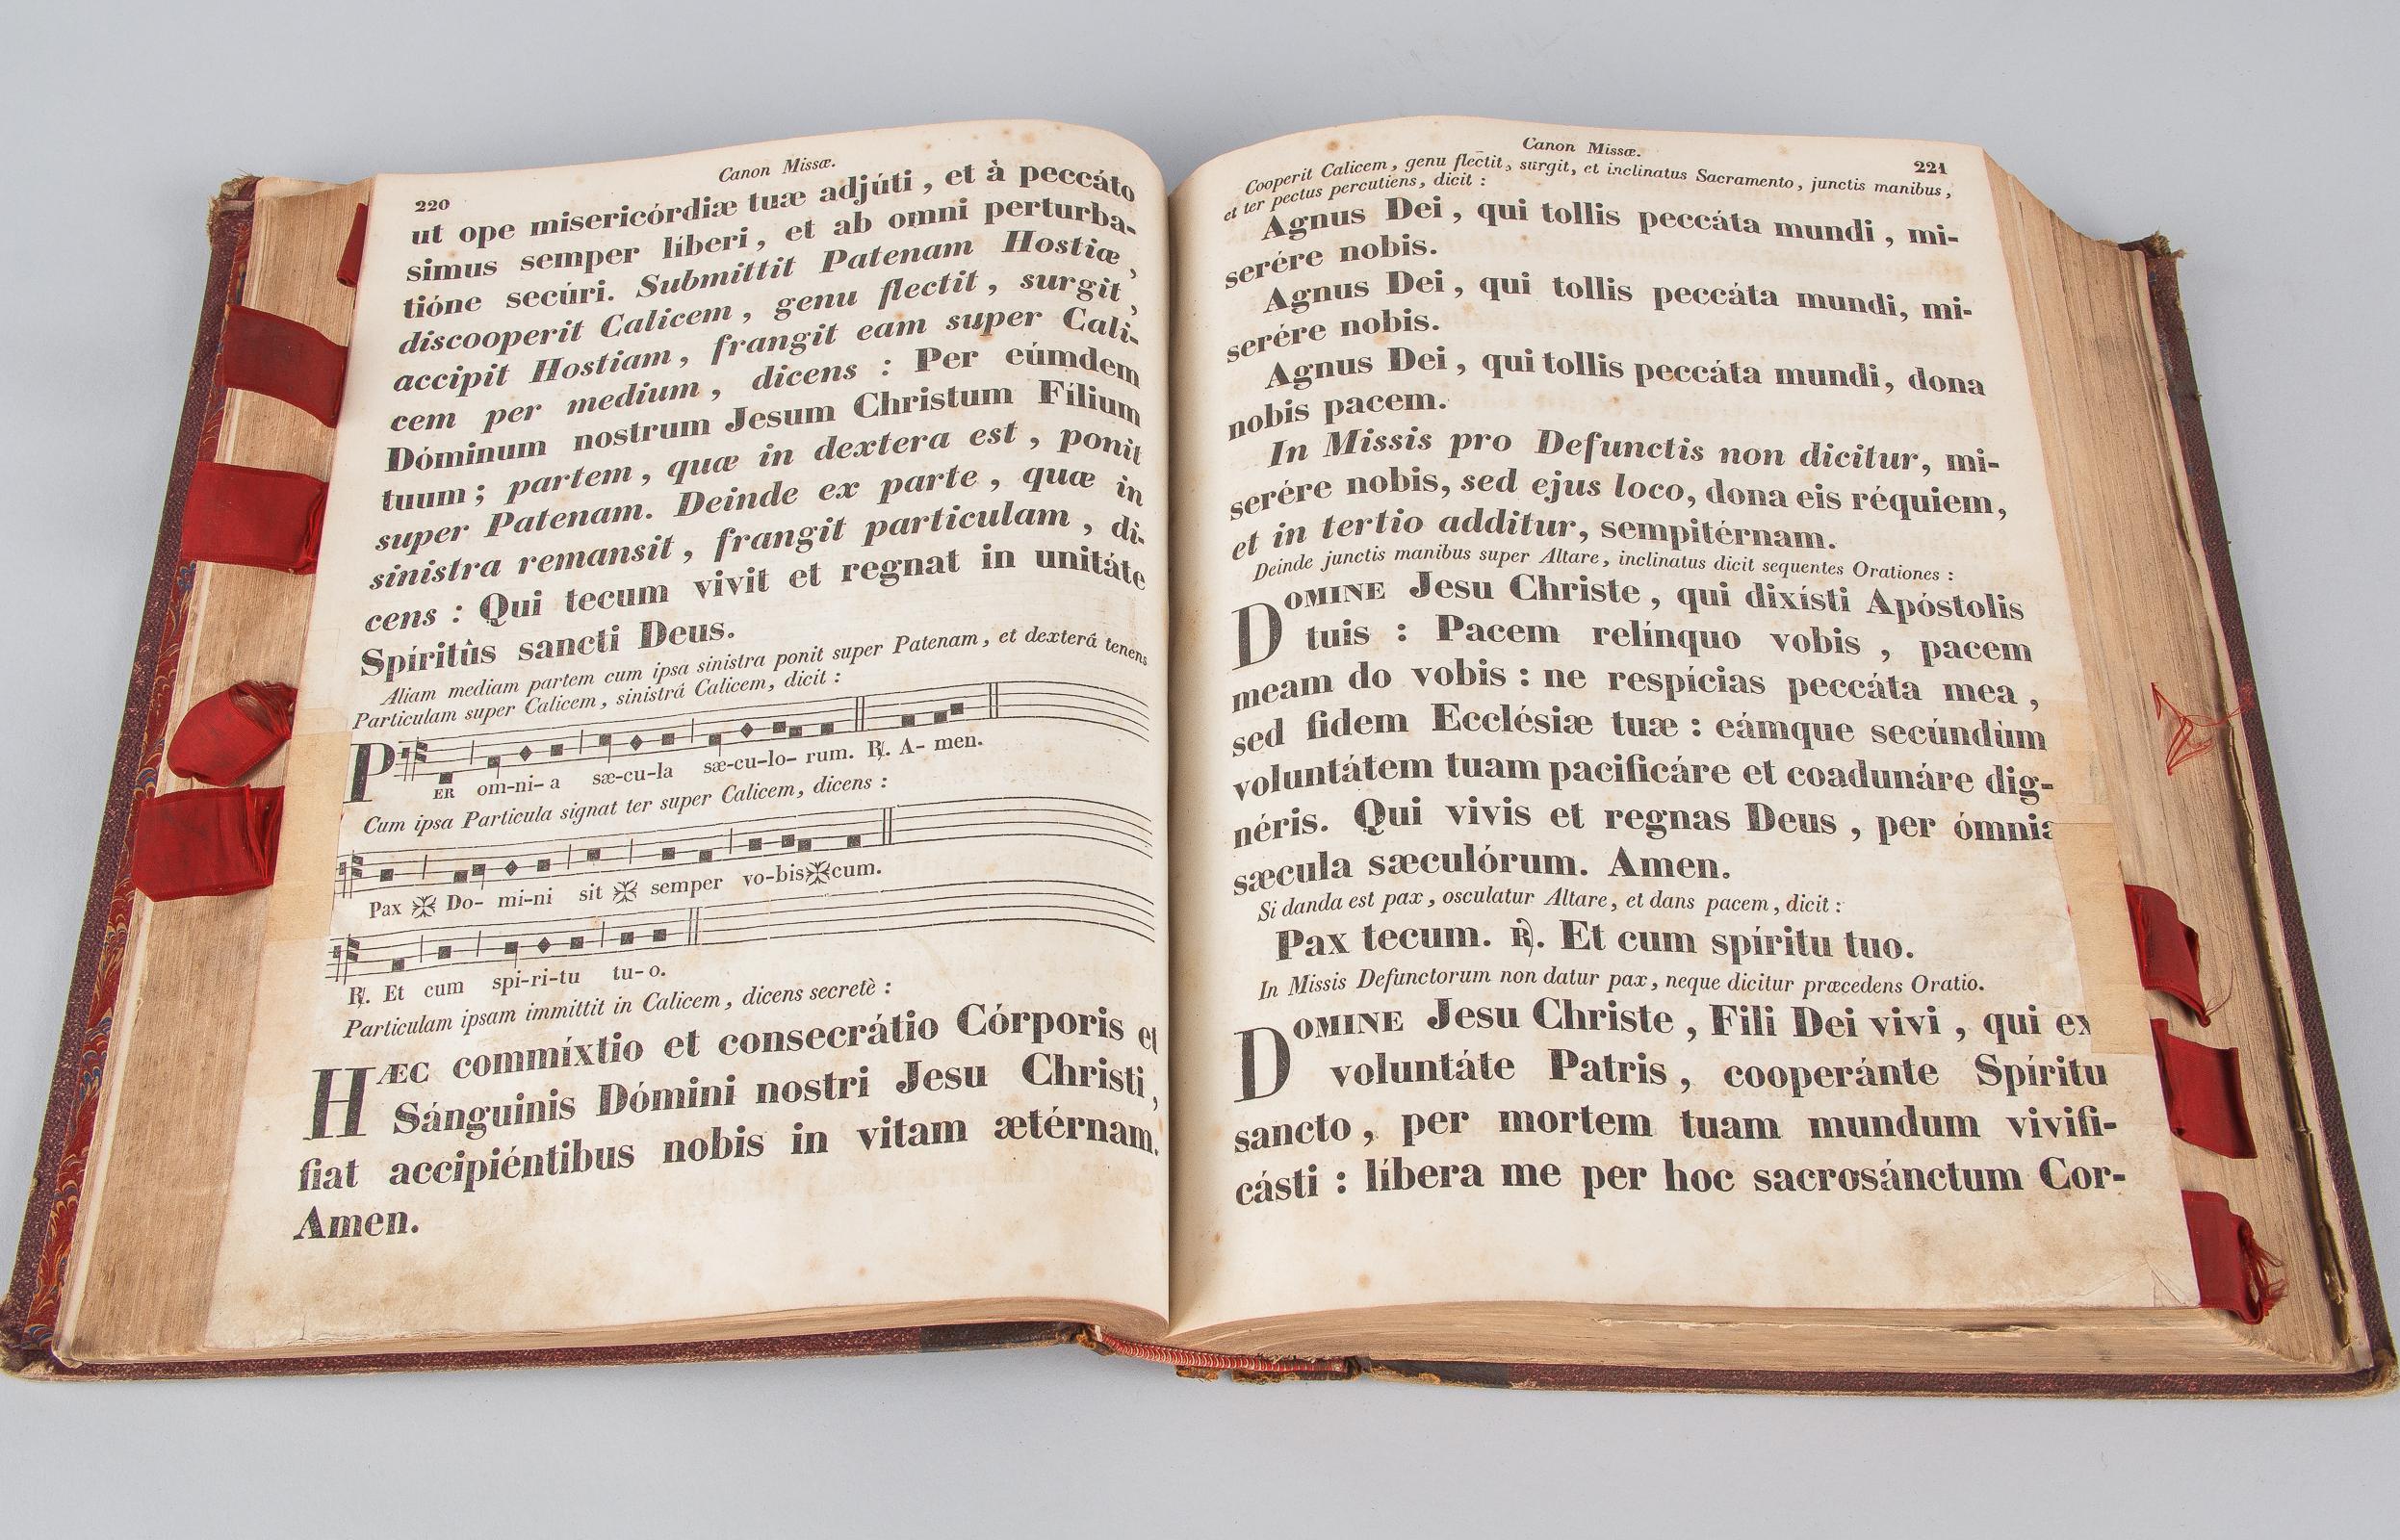 220
Canon Missæ.
ut ope misericórdiæ tuæ adjúti, et à peccáto
simus semper líberi, et ab omni perturba-
tióne secúri. Submittit Patenam Hostiæ,
discooperit Calicem, genu flectit, surgit,
accipit Hostiam, frangit eam super Cali-
cem per medium, dicens : Per eúmdem
Dóminum nostrum Jesum Christum Fílium
tuum; partem, quæ in dextera est, ponit
super Patenam. Deinde ex parte, quæ in
sinistra remansit, frangit particulam, di-
cens : Qui tecum vivit et regnat in unitáte
Spíritùs sancti Deus.
Aliam mediam partem cum ipsa sinistra ponit super Patenam, et dexterá tenens
Particulam super Calicem, sinistrá Calicem, dicit :
PER om-ni-a sæ-cu-la sæ-cu-lo-rum. ℟. A-men.
Cum ipsa Particula signat ter super Calicem, dicens :
Pax ✠ Do-mi-ni sit ✠ semper vo-bis ✠ cum.
℟. Et cum spi-ri-tu tu-o.
Particulam ipsam immittit in Calicem, dicens secretè :
HÆC commíxtio et consecrátio Córporis et
Sánguinis Dómini nostri Jesu Christi,
fiat accipiéntibus nobis in vitam ætérnam.
Amen.
Canon Missæ.
221
Cooperit Calicem, genu flectit, surgit, et inclinatus Sacramento, junctis manibus,
et ter pectus percutiens, dicit :
Agnus Dei, qui tollis peccáta mundi, mi-
serére nobis.
Agnus Dei, qui tollis peccáta mundi, mi-
serére nobis.
Agnus Dei, qui tollis peccáta mundi, dona
nobis pacem.
In Missis pro Defunctis non dicitur, mi-
serére nobis, sed ejus loco, dona eis réquiem,
et in tertio additur, sempitérnam.
Deinde junctis manibus super Altare, inclinatus dicit sequentes Orationes :
DOMINE Jesu Christe, qui dixísti Apóstolis
tuis : Pacem relínquo vobis, pacem
meam do vobis : ne respícias peccáta mea,
sed fidem Ecclésiæ tuæ : eámque secúndùm
voluntátem tuam pacificáre et coadunáre dig-
néris. Qui vivis et regnas Deus, per ómnia
sæcula sæculórum. Amen.
Si danda est pax, osculatur Altare, et dans pacem, dicit :
Pax tecum. ℟. Et cum spíritu tuo.
In Missis Defunctorum non datur pax, neque dicitur præcedens Oratio.
DOMINE Jesu Christe, Fili Dei vivi, qui ex
voluntáte Patris, cooperánte Spíritu
sancto, per mortem tuam mundum vivifi-
cásti : líbera me per hoc sacrosánctum Cor-